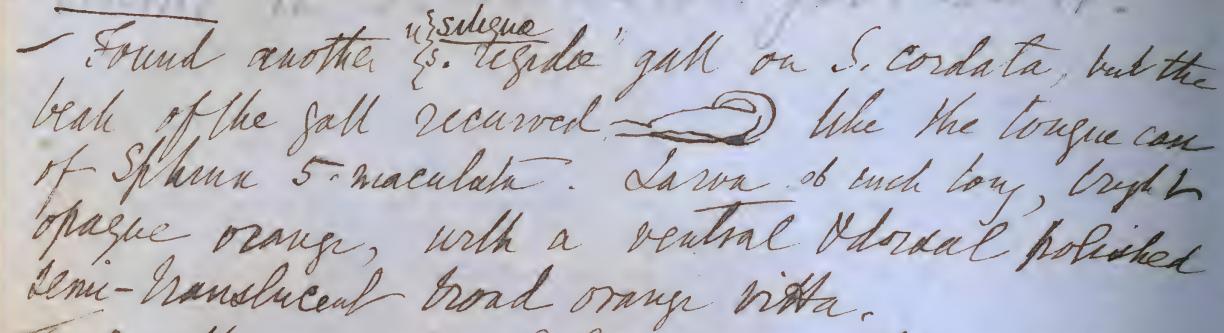 siliqua
– Found another "{s. rigidae" gall on S. cordata, but the
beak of the gall recurved like the tongue case
of Sphinx 5-maculata. Larva .06 inch long, bright
opaque orange, with a ventral & dorsal polished
semi-translucent broad orange vitta.